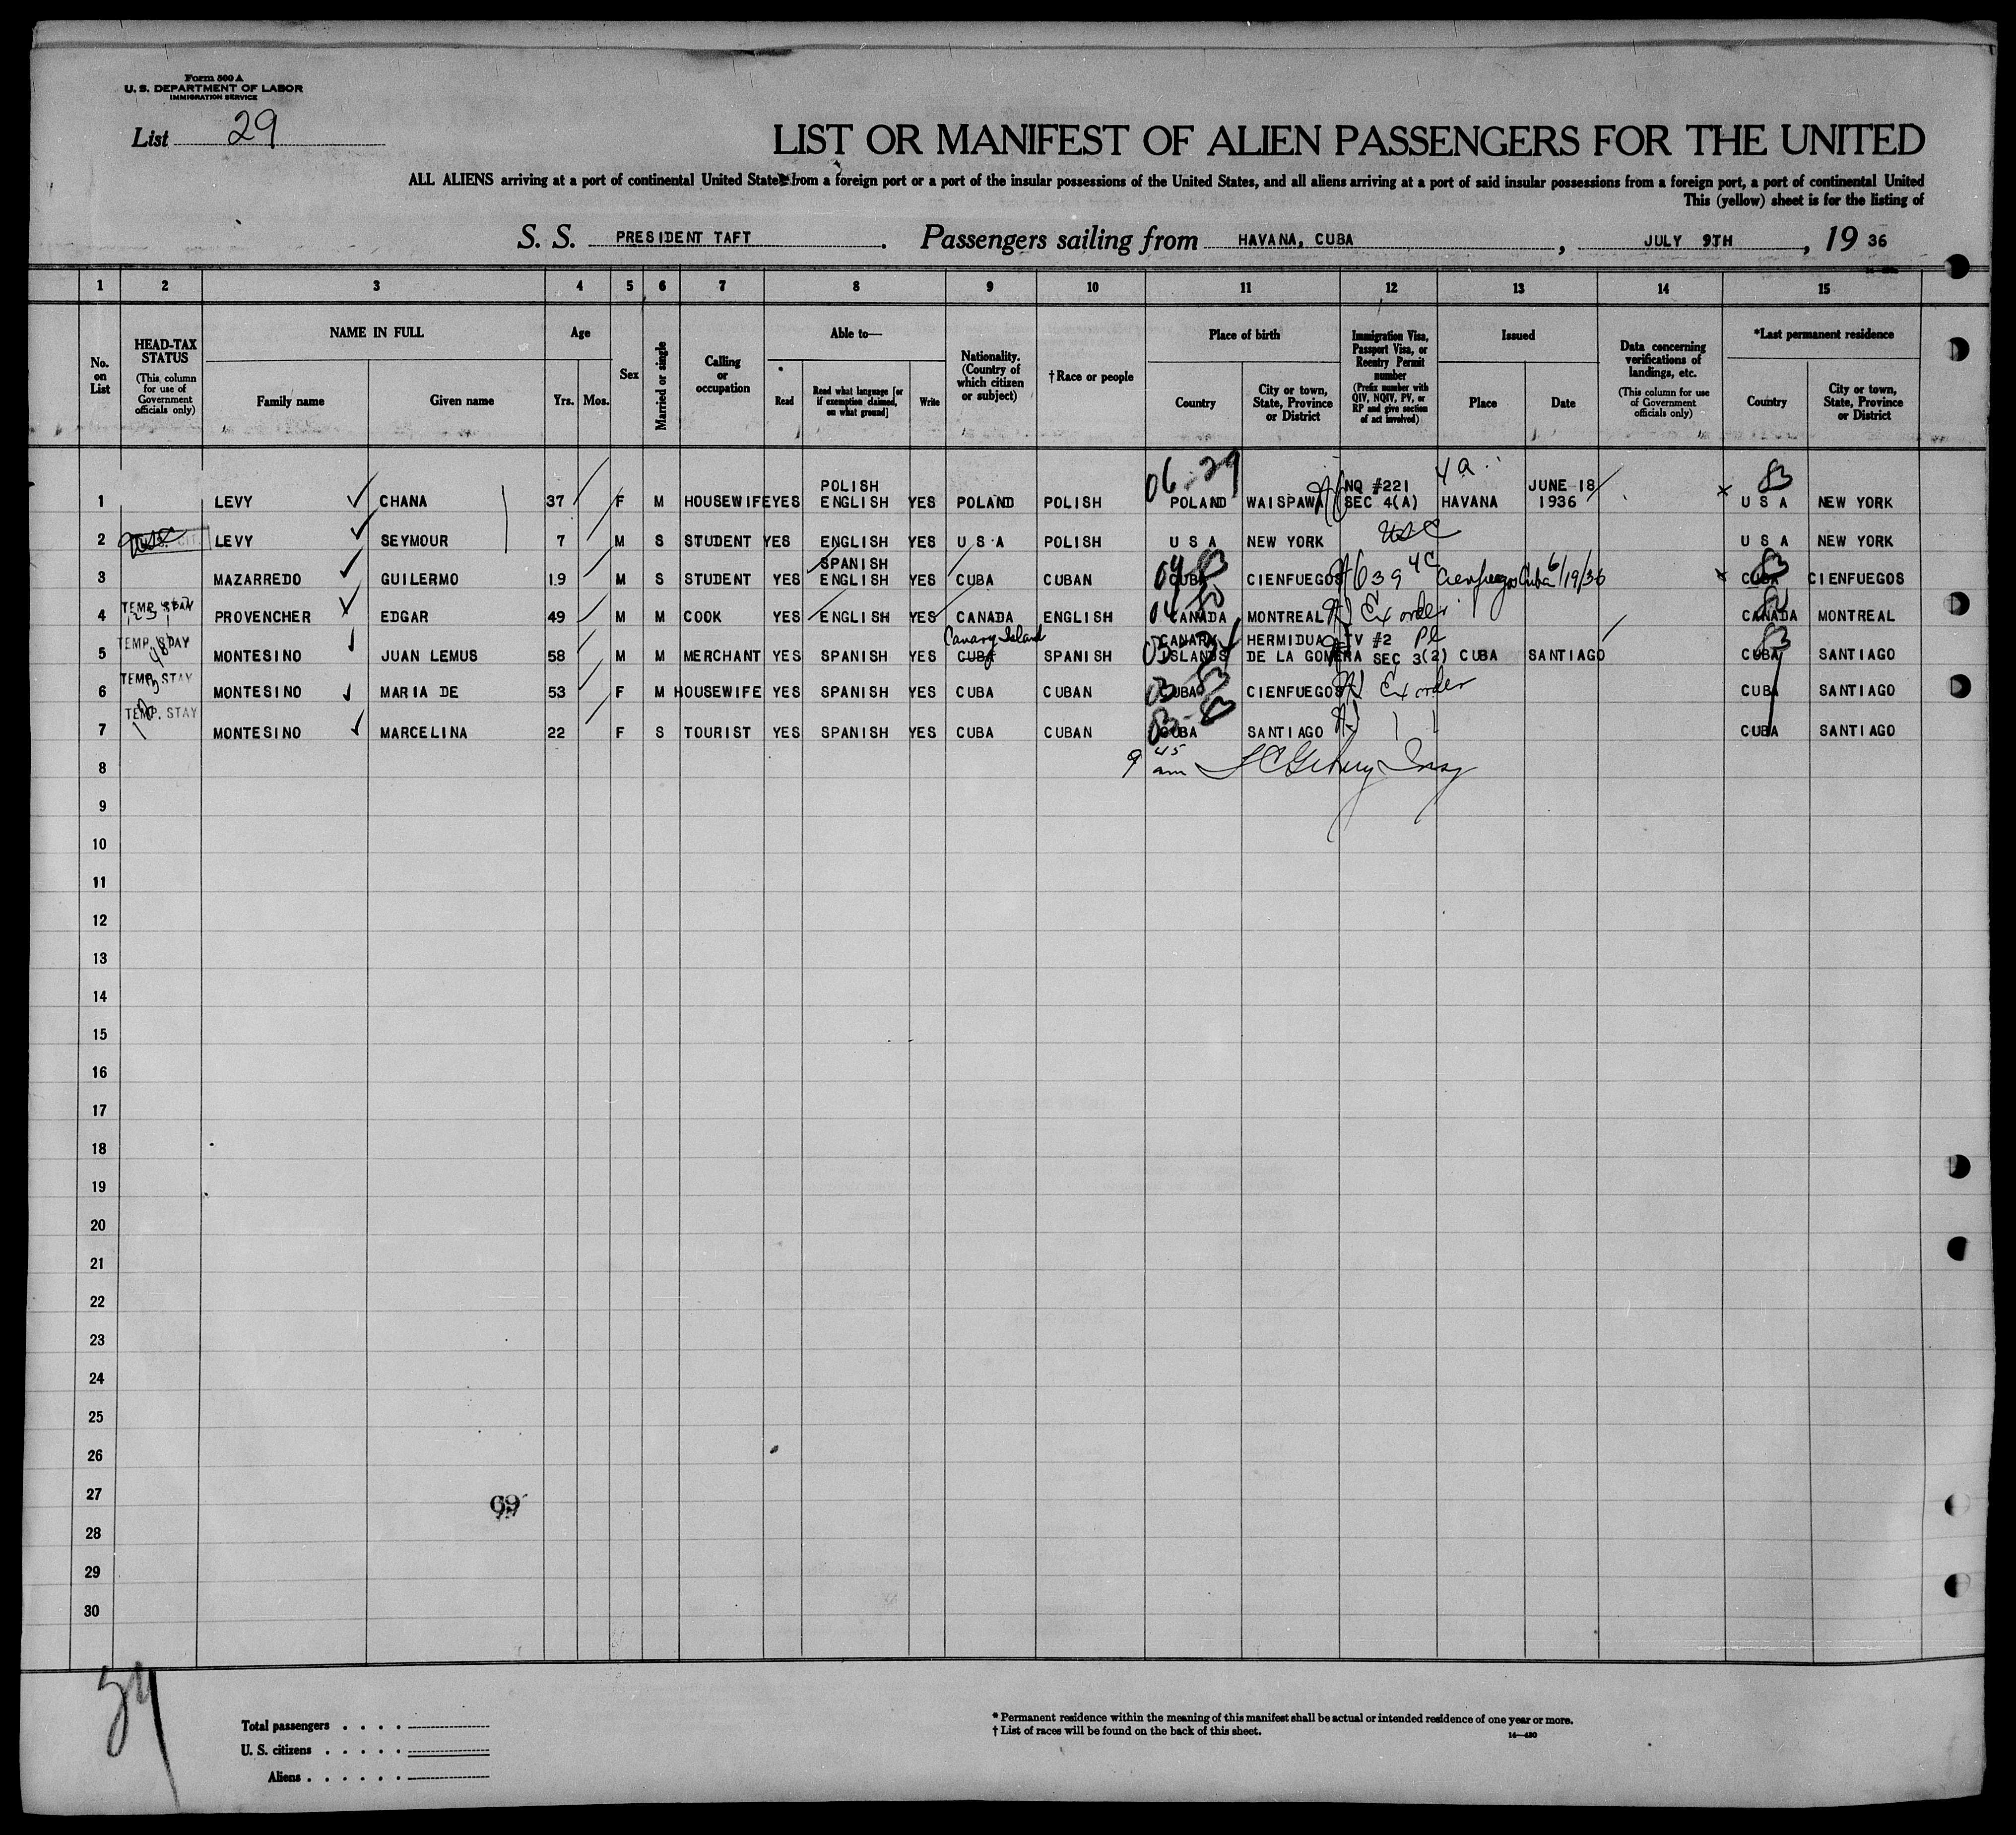 Form 500 A
U. S. DEPARTMENT OF LABOR
IMMIGRATION SERVICE
List 29
LIST OR MANIFEST OF ALIEN PASSENGERS FOR THE UNITED
ALL ALIENS arriving at a port of continental United States from a foreign port or a port of the insular possessions of the United States, and all aliens arriving at a port of said insular possessions from a foreign port, a port of continental United
This (yellow) sheet is for the listing of
S. S. PRESIDENT TAFT. Passengers sailing from HAVANA, CUBA, JULY 9TH, 1936
1 2 3 4 5 6 7 8 9 10 11 12 13 14 15
No. on List
HEAD-TAX STATUS (This column for use of Government officials only)
NAME IN FULL
Family name Given name
Age
Yrs. Mos.
Sex
Married or single
Calling or occupation
Able to—
Read Read what language [or if exemption claimed, on what ground] Write
Nationality. (Country of which citizen or subject)
†Race or people
Place of birth
Country City or town, State, Province or District
Immigration Visa, Passport Visa, or Reentry Permit number (Prefix number with QIV, NQIV, PV, or RP and give section of act involved)
Issued
Place Date
Data concerning verifications of landings, etc. (This column for use of Government officials only)
*Last permanent residence
Country City or town, State, Province or District
06-29 4a 83
POLISH NQ #221 JUNE 18
1 LEVY CHANA 37 F M HOUSEWIFE YES ENGLISH YES POLAND POLISH POLAND WAISPAWA SEC 4(A) HAVANA 1936 U S A NEW YORK
2 LEVY SEYMOUR 7 M S STUDENT YES ENGLISH YES U S A POLISH U S A NEW YORK USC U S A NEW YORK
SPANISH
3 MAZARREDO GUILERMO 19 M S STUDENT YES ENGLISH YES CUBA CUBAN CUBA CIENFUEGOS 639 4C Cienfuegos Cuba 6/19/36 CUBA CIENFUEGOS
TEMP. STAY
4 PROVENCHER EDGAR 49 M M COOK YES ENGLISH YES CANADA ENGLISH CANADA MONTREAL Ex order CANADA MONTREAL
TEMP. STAY Canary Island CANARY HERMIDUA TV #2
5 MONTESINO JUAN LEMUS 58 M M MERCHANT YES SPANISH YES CUBA SPANISH ISLANDS DE LA GOMERA SEC 3(2) CUBA SANTIAGO CUBA SANTIAGO
TEMP. STAY
6 MONTESINO MARIA DE 53 F M HOUSEWIFE YES SPANISH YES CUBA CUBAN CUBA CIENFUEGOS Ex order CUBA SANTIAGO
TEMP. STAY
7 MONTESINO MARCELINA 22 F S TOURIST YES SPANISH YES CUBA CUBAN CUBA SANTIAGO CUBA SANTIAGO
8 9 45 am
9
10
11
12
13
14
15
16
17
18
19
20
21
22
23
24
25
26
27
69
28
29
30
Total passengers
U. S. citizens
Aliens
* Permanent residence within the meaning of this manifest shall be actual or intended residence of one year or more.
† List of races will be found on the back of this sheet.
14—430